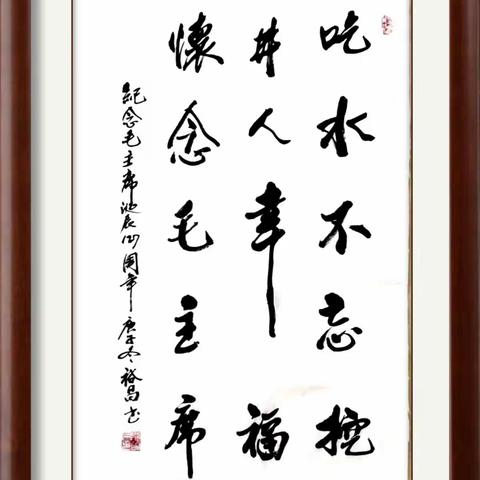 吃水不忘挖
井人幸福
懷念毛主席
紀念毛主席诞辰127周年 庚子冬 裕昌书